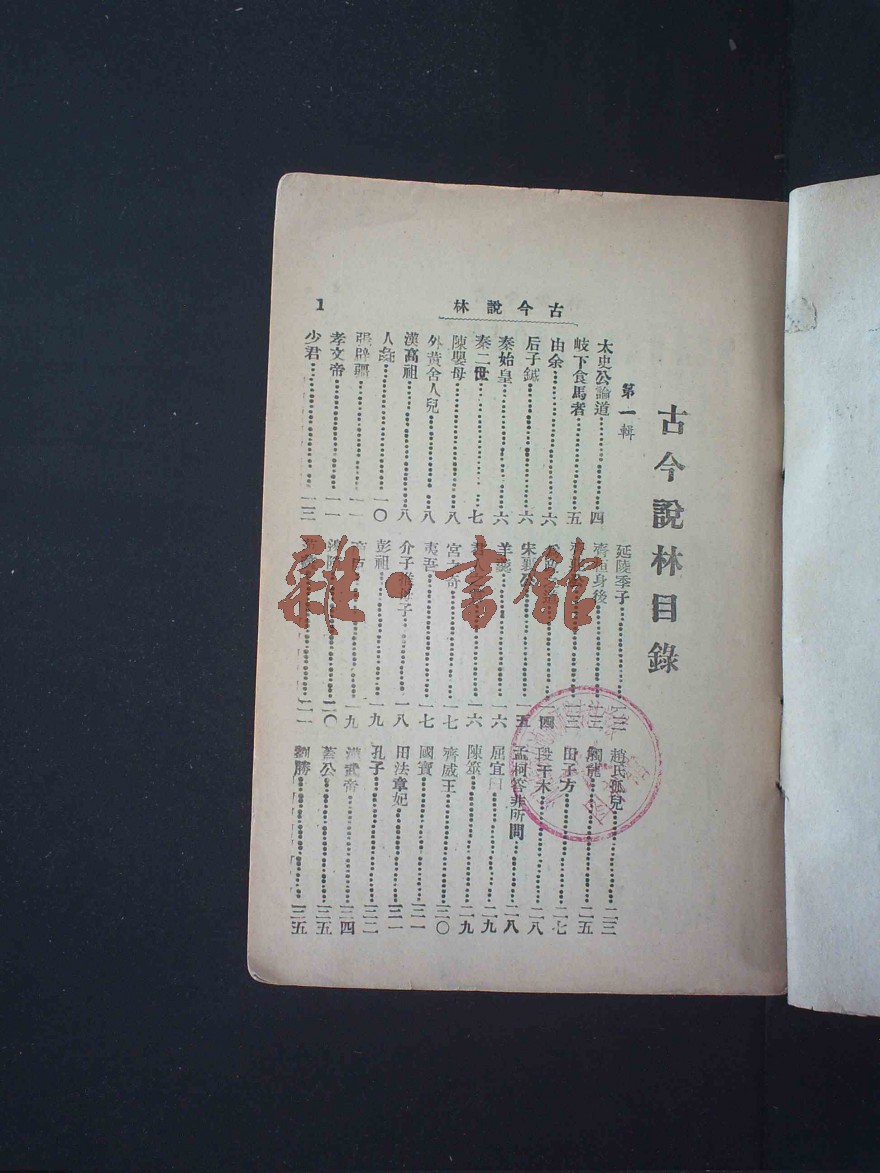 古今說林
1
古今說林目錄
第一輯
太史公論道 四
岐下食馬者 五
由余 六
后子鍼 六
秦始皇 六
秦二世 七
陳嬰母 八
外黃舍人兒 八
漢高祖 八
人彘 一〇
張辟疆 一一
孝文帝 一一
少君 一三
延陵季子
齊桓身後 一三
一三
一四
宋襄公 一五
羊 一六
一六
宮之奇 一七
夷吾 一七
介子推 子 一八
彭祖 一九
一九
二〇
二一
趙氏孤兒 二三
觸讋 二五
田子方 二七
段干木 二八
孟柯答非所問 二八
屈宜臼 二九
陳筮 二九
齊威王 三〇
國寶 三一
田法章妃 三一
孔子 三二
漢武帝 三四
蓋公 三五
劉勝 三五
雜·書館